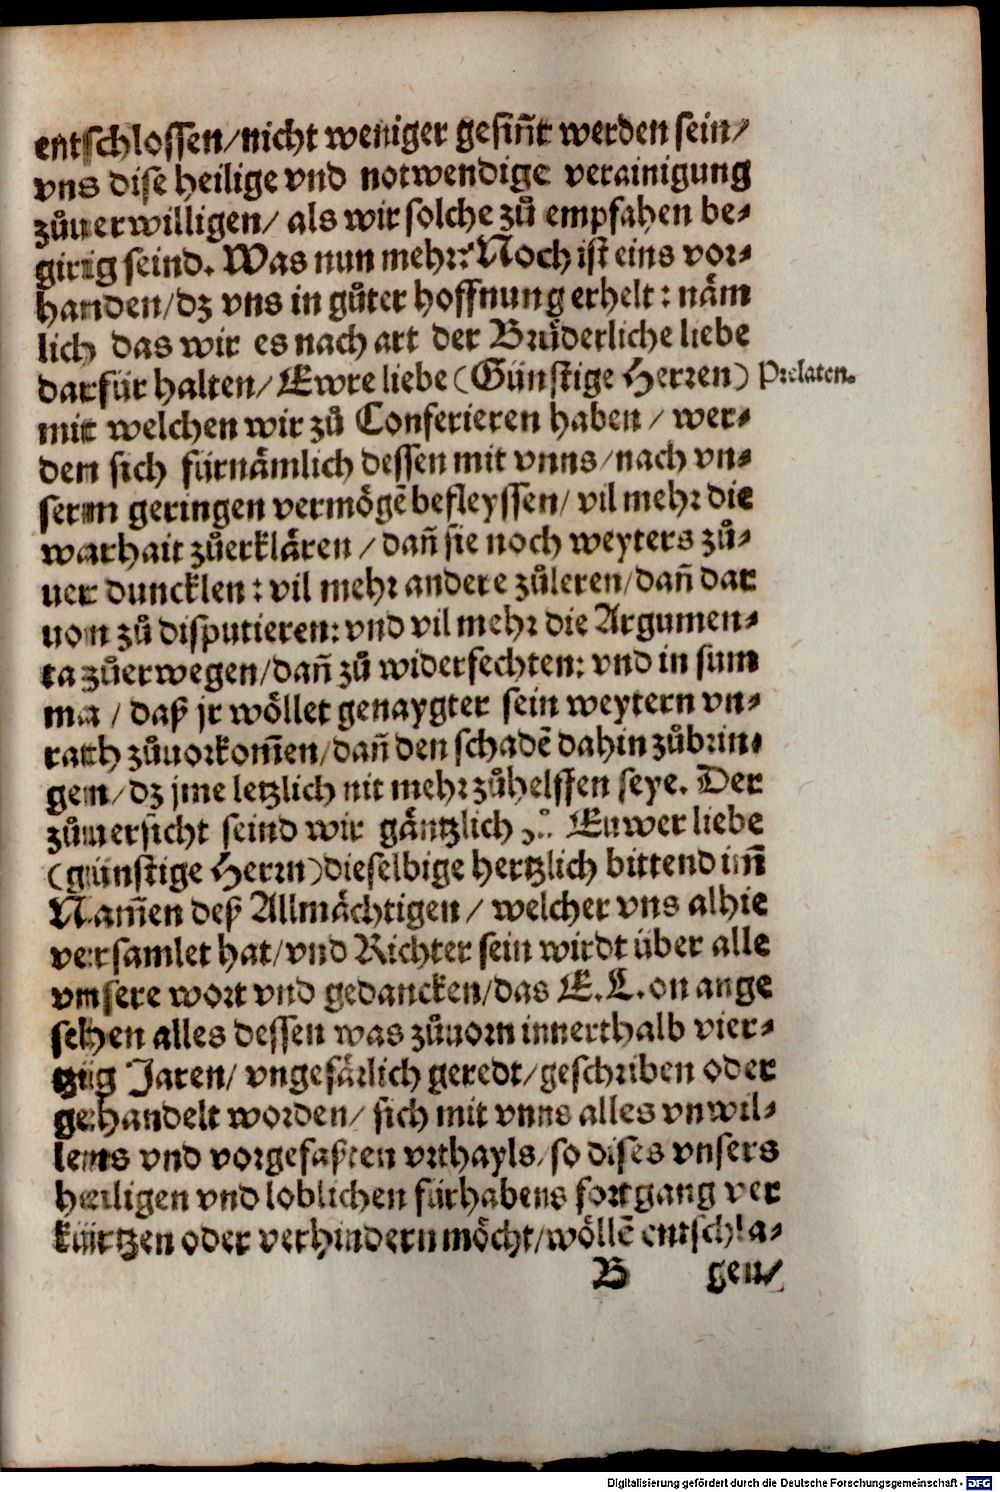 entschlossen/nicht weniger gesiñt werden sein/
vns dise heilige vnd notwendige verainigung
zůuerwilligen/ als wir solche zů empfahen be-
girig seind. Was nun mehr? Noch ist eins vor-
handen/dz vns in gůter hoffnung erhelt: näm
lich das wir es nach art der Brüderliche liebe
darfür halten/ Ewre liebe (Günstige Herren) Prelaten.
mit welchen wir zů Conferieren haben / wer-
den sich fürnämlich dessen mit vnns/nach vn-
serm geringen vermögē befleyssen/ vil mehr die
warhait zůerklären / dañ sie noch weyters zů-
uer duncklen: vil mehr andere zůleren/dañ dar
uon zů disputieren: vnd vil mehr die Argumen-
ta zůerwegen/dañ zů widerfechten: vnd in sum
ma / daß jr wöllet genaygter sein weytern vn-
rath zůuorkom̃en/dañ den schadē dahin zůbrin-
gen/dz jme letzlich nit mehr zůhelffen seye. Der
zůuersicht seind wir gäntzlich zů Euwer liebe
(günstige Herrn)dieselbige hertzlich bittend im̃
Nam̃en deß Allmächtigen / welcher vns alhie
versamlet hat/vnd Richter sein wirdt über alle
vnsere wort vnd gedancken/das E.L.on ange
sehen alles dessen was zůuorn innerthalb vier-
tzig Jaren/ vngefärlich geredt/geschriben oder
gehandelt worden/ sich mit vnns alles vnwil-
lens vnd vorgefaßten vrthayls/so dises vnsers
heiligen vnd loblichen fürhabens fortgang ver
kürtzen oder verhindern möcht/wöllē entschla-
B gen/
Digitalisierung gefördert durch die Deutsche Forschungsgemeinschaft - DFG